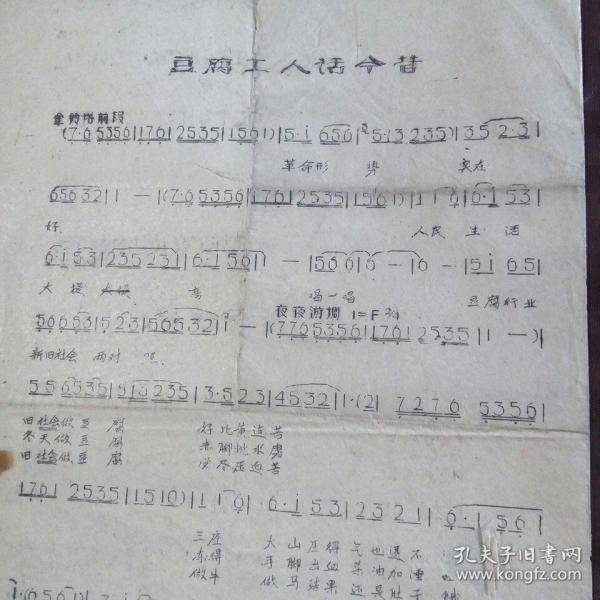 豆腐工人话今昔
(7·6 5356|1761|2535|1561)|5·i 656|5·13 235)|35 2·3|
革命形 势 实在
65632|1 —|(7·6 5356|1761 2535|1561)|1 1 6|6·i 53|
好 人民 生 活
6·i 53|235 231|6·i 561|1 —|5 6 6|6 —|6 —|5 i 65|
大 提 高 唱一唱 豆腐行业
夜夜游调 1=F 2/4
新旧社会 两对
5 5 6535|5 3 235|3·5 23|4532|1·(2|7276|5356|
旧社会做豆 腐 好比黄连苦
冬天做豆 腐 赤脚挑水
旧社会做豆 腐 受尽压迫苦
1761 2535|1510)|1 1 6|6·i 53|2321|6·i 56|
三座 大山压得 气也透不
冻得 手脚出血 菜油加
做牛 做马结果 还 肚子 饿
孔夫子旧书网
www.kongfz.com